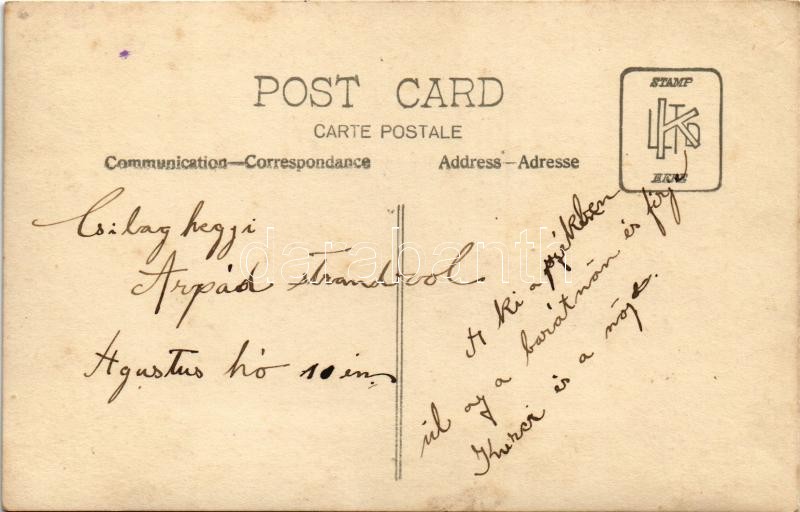 POST CARD
CARTE POSTALE
Communication—Correspondance
Address—Adresse
STAMP
HERE
Csilag hegyi
Arpád strandrol
Agustus hó 10 én
A ki a székben
ül az a barátnőn és férj
Kurci és a nője.
databanth